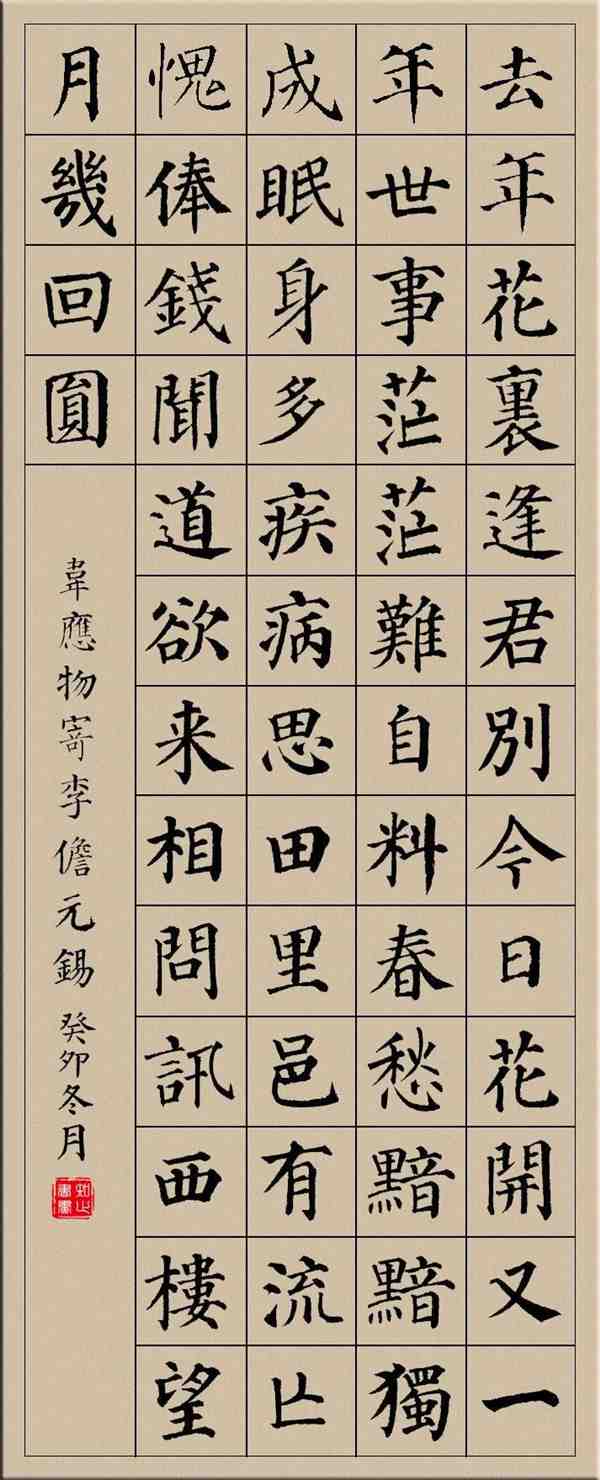 去年花裏逢君別今日花開又一
年世事茫茫難自料春愁黯黯獨
成眠身多疾病思田里邑有流亾
愧俸錢聞道欲来相問訊西樓望
月幾回圓
韋應物寄李儋元錫癸卯冬月